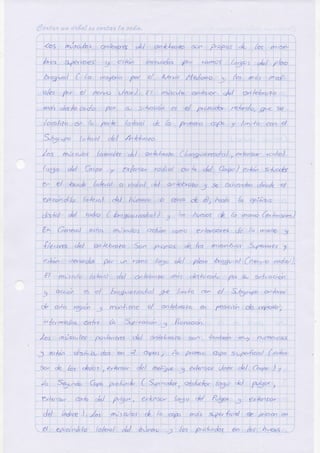 Los músculos anteriores del antebrazo son propios de los miem-
bros superiores y están inervados por ramos largos del plexo
braquial (la mayoría por el Nervio Mediano y los más medi-
ales por el nervio ulnar). El músculo anterior del antebrazo
más destacado por su situación es el pronador redondo, que se
localiza en la parte lateral de la primera capa y limita con el
Subgrupo lateral del Antebrazo
Los músculos laterales del antebrazo (braquiorradial, extensor radial
largo del Carpo y extensor radial corto del Carpo) están situados
en el borde lateral o radial del antebrazo y se extienden desde el
epicóndilo lateral del húmero o cerca de él, hasta la epífisis
distal del radio (braquiorradial) y los huesos de la mano (extensores)
En General estos músculos actúan como extensores de la mano y
flexores del antebrazo Son propios de los miembros Superiores y
están inervados por un ramo largo del plexo braquial (nervio radial).
El músculo lateral del antebrazo más destacado por su situación
y acción es el braquiorradial que limita con el Subgrupo anterior
de esta región y mantiene el antebrazo en posición de reposo,
intermedia entre la Supinación y Pronación.
Los músculos posteriores del antebrazo son también muy numerosos
y están distribuidos en 2 capas; La primera capa superficial (exten-
sor de los dedos, extensor del meñique y extensor ulnar del Carpo) y
La Segunda Capa profunda (Supinador, abductor largo del pulgar,
extensor corto del pulgar, extensor largo del Pulgar y extensor
del índice). Los músculos de la capa más superficial se inician en
el epicóndilo lateral del húmero y los profundos en los huesos